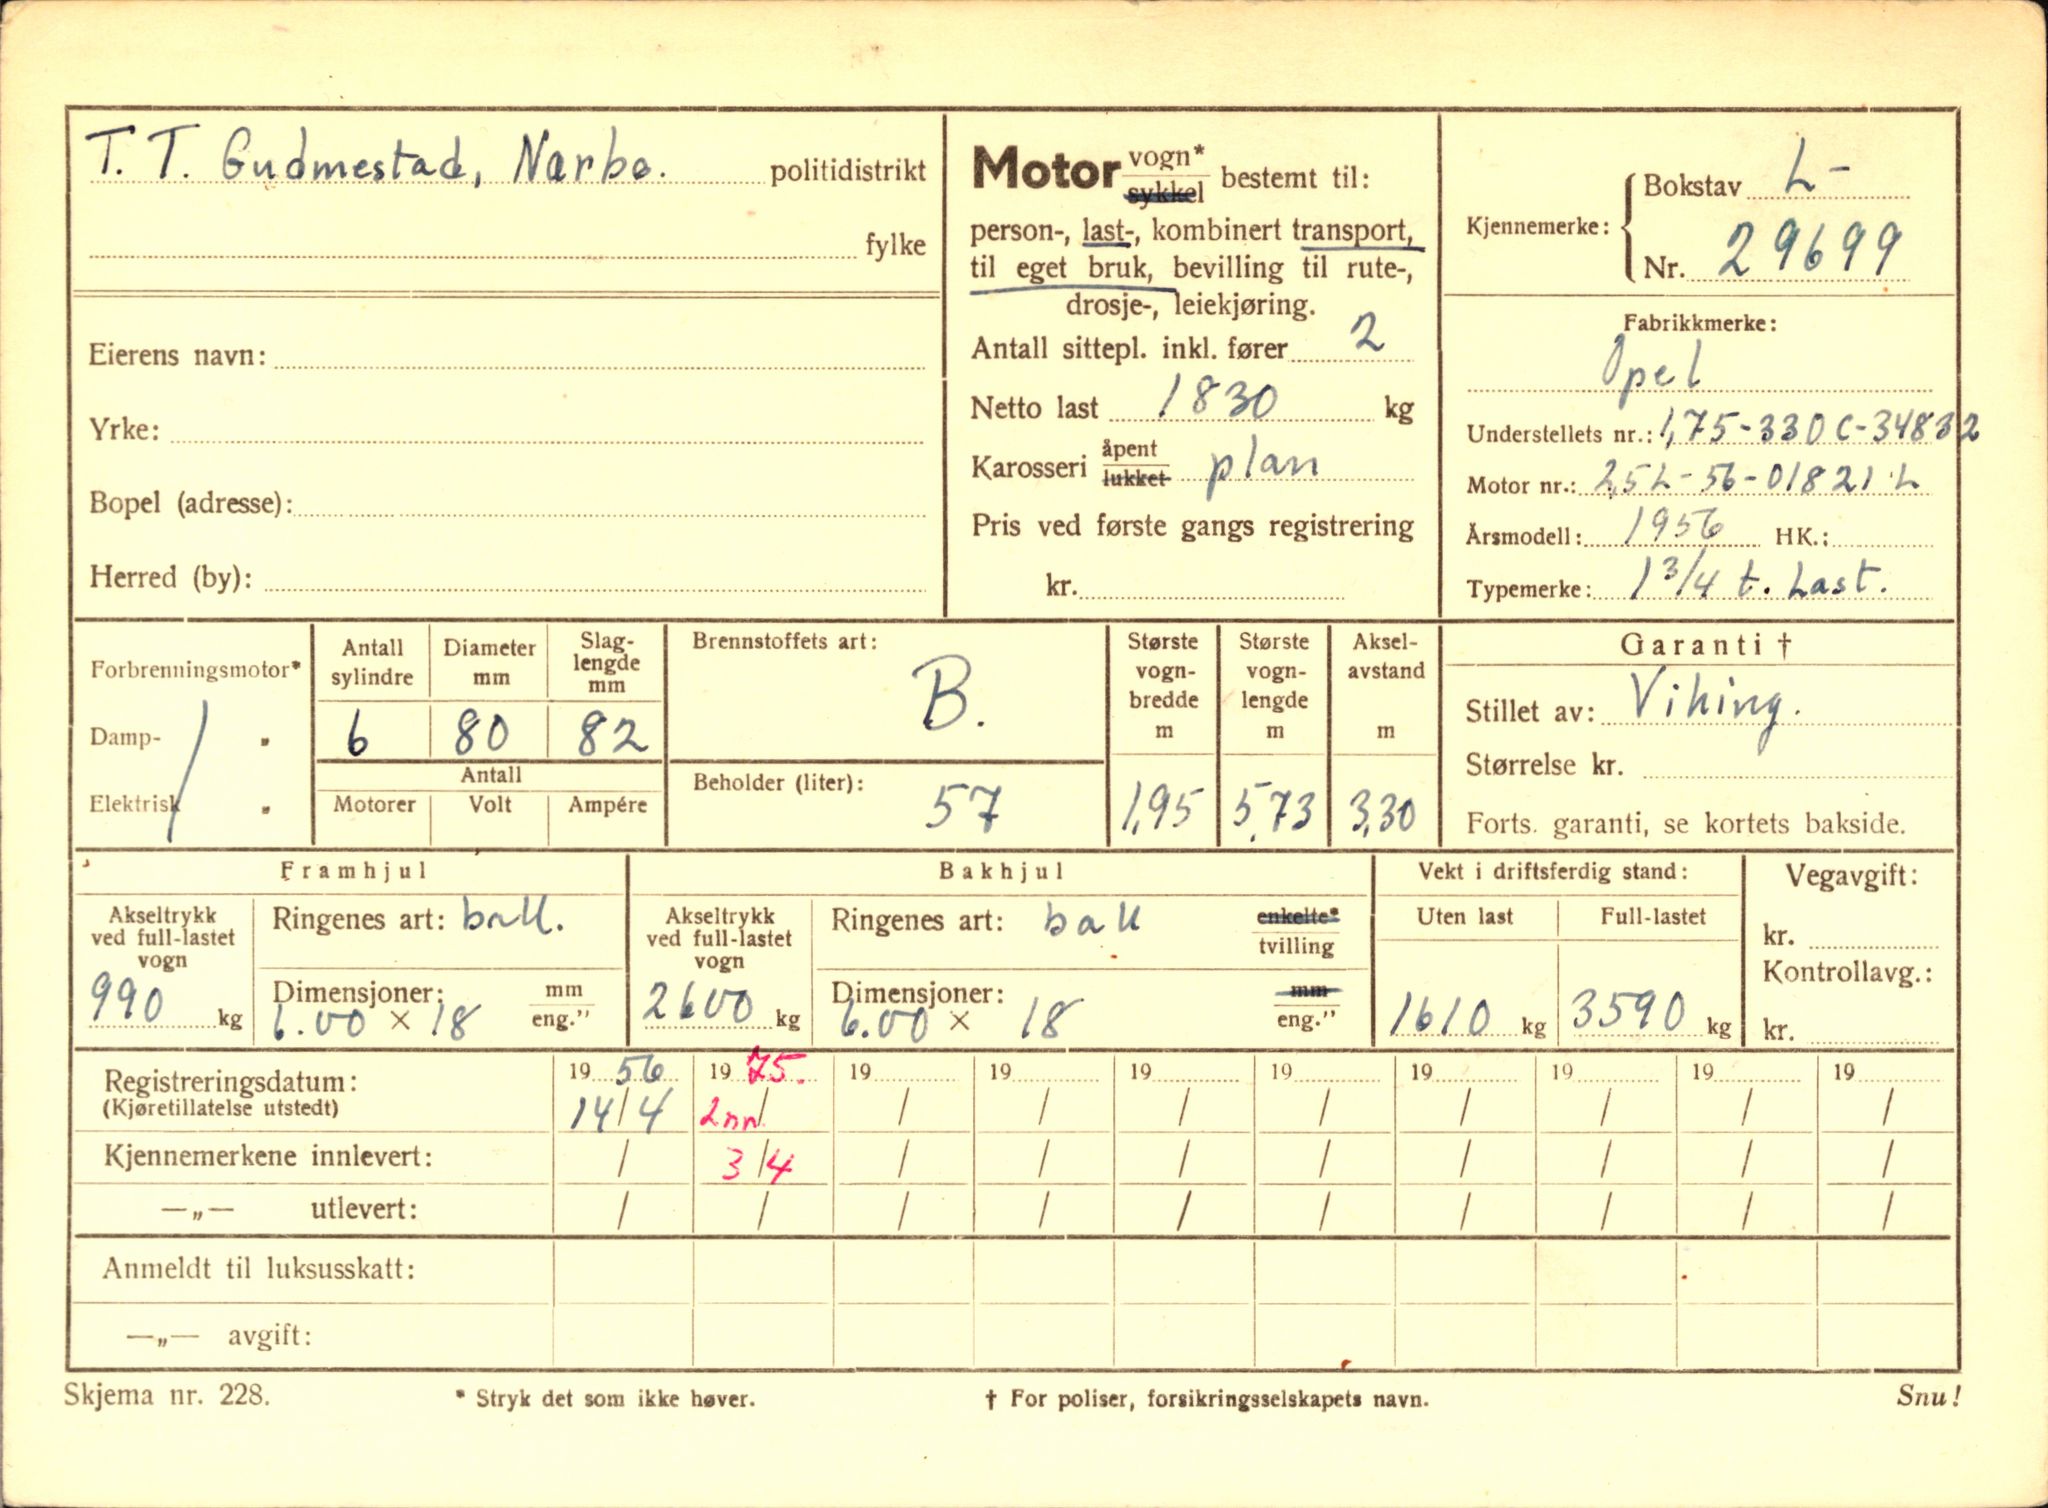 T. T. Gudmestad, Nærbø. politidistrikt
fylke
Eierens navn:
Yrke:
Bopel (adresse):
Herred (by):
Motor vogn* sykkel bestemt til:
person-, last-, kombinert transport,
til eget bruk, bevilling til rute-,
drosje-, leiekjøring.
Antall sittepl. inkl. fører 2
Netto last 1830 kg
Karosseri åpent lukket plan
Pris ved første gangs registrering
kr.
Kjennemerke: Bokstav L-
Nr. 29699
Fabrikkmerke:
Opel
Understellets nr.: 1,75-330C-34832
Motor nr.: 2,5L-56-01821 L
Årsmodell: 1956 HK.:
Typemerke: 1 3/4 t. Last.
Forbrenningsmotor*
Damp- "
Elektrisk "
Antall sylindre
Diameter mm
Slag-lengde mm
6 80 82
Antall
Motorer Volt Ampére
Brennstoffets art:
B.
Beholder (liter):
57
Største vogn-bredde m
1,95
Største vogn-lengde m
5,73
Aksel-avstand m
3,30
Garanti †
Stillet av: Viking.
Størrelse kr.
Forts. garanti, se kortets bakside.
Framhjul
Akseltrykk ved full-lastet vogn
990 kg
Ringenes art: ball.
Dimensjoner: mm
6.00 × 18 eng."
Bakhjul
Akseltrykk ved full-lastet vogn
2600 kg
Ringenes art: ball enkelte* tvilling
Dimensjoner: mm
6.00 × 18 eng."
Vekt i driftsferdig stand:
Uten last Full-lastet
1610 kg 3590 kg
Vegavgift:
kr.
Kontrollavg.:
kr.
Registreringsdatum: 19 56 19 75. 19 19 19 19 19 19 19 19
(Kjøretillatelse utstedt) 14/4 2nn / / / / / / / / /
Kjennemerkene innlevert: / 3/4 / / / / / / / /
—„— utlevert: / / / / / / / / / /
Anmeldt til luksusskatt:
—„— avgift:
Skjema nr. 228. * Stryk det som ikke høver. † For poliser, forsikringsselskapets navn. Snu!